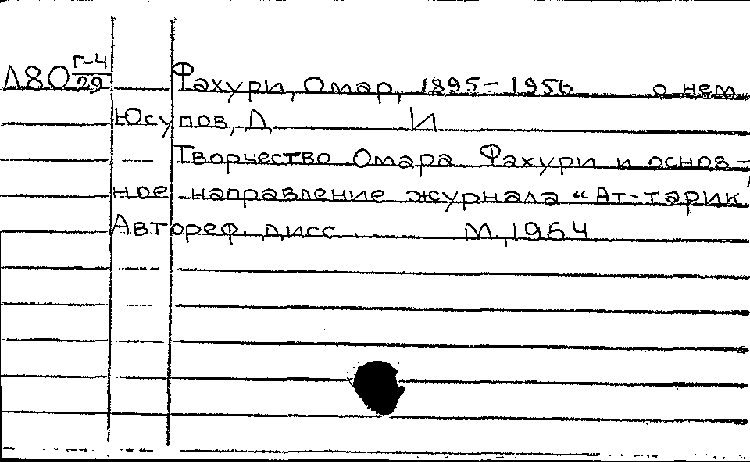 Л80 Г-4/29 Фахури, Омар, 1895-1956 о нем
Юсупов, Д. И
Творчество Омара Фахури и основ-
ное направление журнала "Ат-тарик"
Автореф. дисс. М., 1964